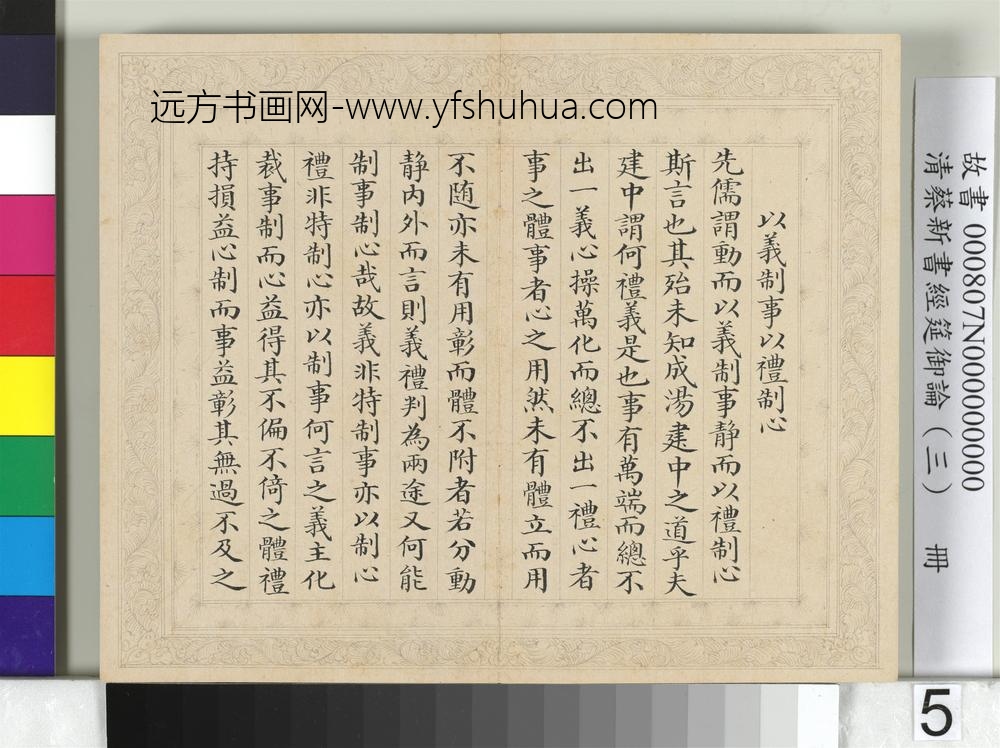 远方书画网-www.yfshuhua.com
以義制事以禮制心
先儒謂動而以義制事静而以禮制心
斯言也其殆未知成湯建中之道乎夫
建中謂何禮義是也事有萬端而總不
出一義心操萬化而總不出一禮心者
事之體事者心之用然未有體立而用
不随亦未有用彰而體不附者若分動
静内外而言則義禮判為兩途又何能
制事制心哉故義非特制事亦以制心
禮非特制心亦以制事何言之義主化
裁事制而心益得其不偏不倚之體禮
持損益心制而事益彰其無過不及之
故書 000807N000000000
清蔡新書經筵御論(三) 冊
5